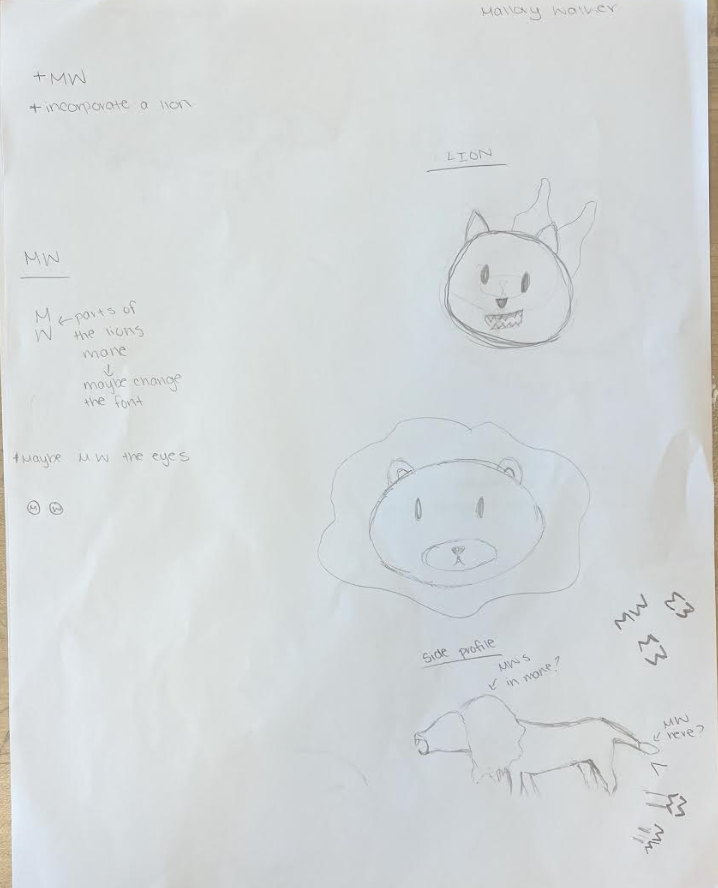 Mallory Walker
+MW
+incorporate a lion
LION
MW
M
W
←parts of
the lions
mane
↓
maybe change
the font
+Maybe MW the eyes
M W
Side profile
MWs
in mane?
MW
here?
MW
MW
MW
MW
MW